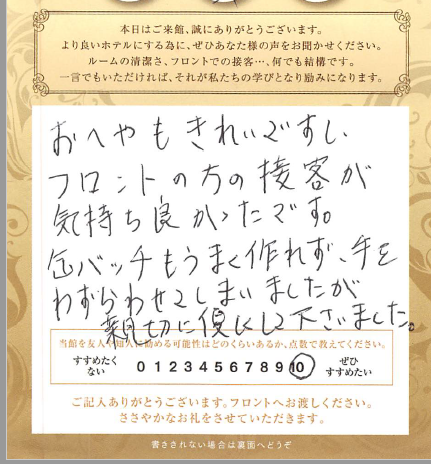 本日はご来館、誠にありがとうございます。
より良いホテルにする為に、ぜひあなた様の声をお聞かせください。
ルームの清潔さ、フロントでの接客…、何でも結構です。
一言でもいただければ、それが私たちの学びとなり励みになります。
おへやもきれいですし
フロントの方の接客が
気持ち良かったです。
缶バッチもうまく作れず、手を
わずらわせてしまいましたが
親切に優しして下さいました。
当館を友人や知人に勧める可能性はどのくらいあるか、点数で教えてください。
すすめたくない 0 1 2 3 4 5 6 7 8 9 10 ぜひすすめたい
ご記入ありがとうございます。フロントへお渡しください。
ささやかなお礼をさせていただきます。
書ききれない場合は裏面へどうぞ